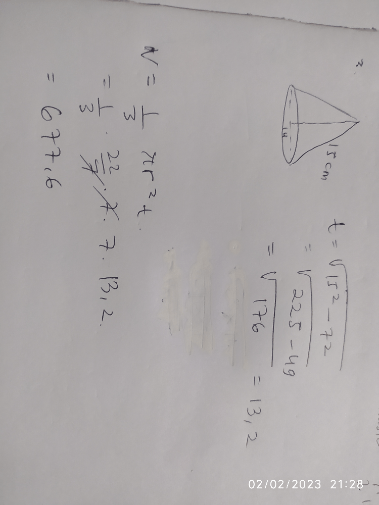 2.
14
15 cm
t = √15² - 7²
= √225 - 49
= √176 = 13,2
V = 1/3 πr²t.
= 1/3 · 22/7 · 7 · 7 · 13,2.
= 677,6
02/02/2023 21:28